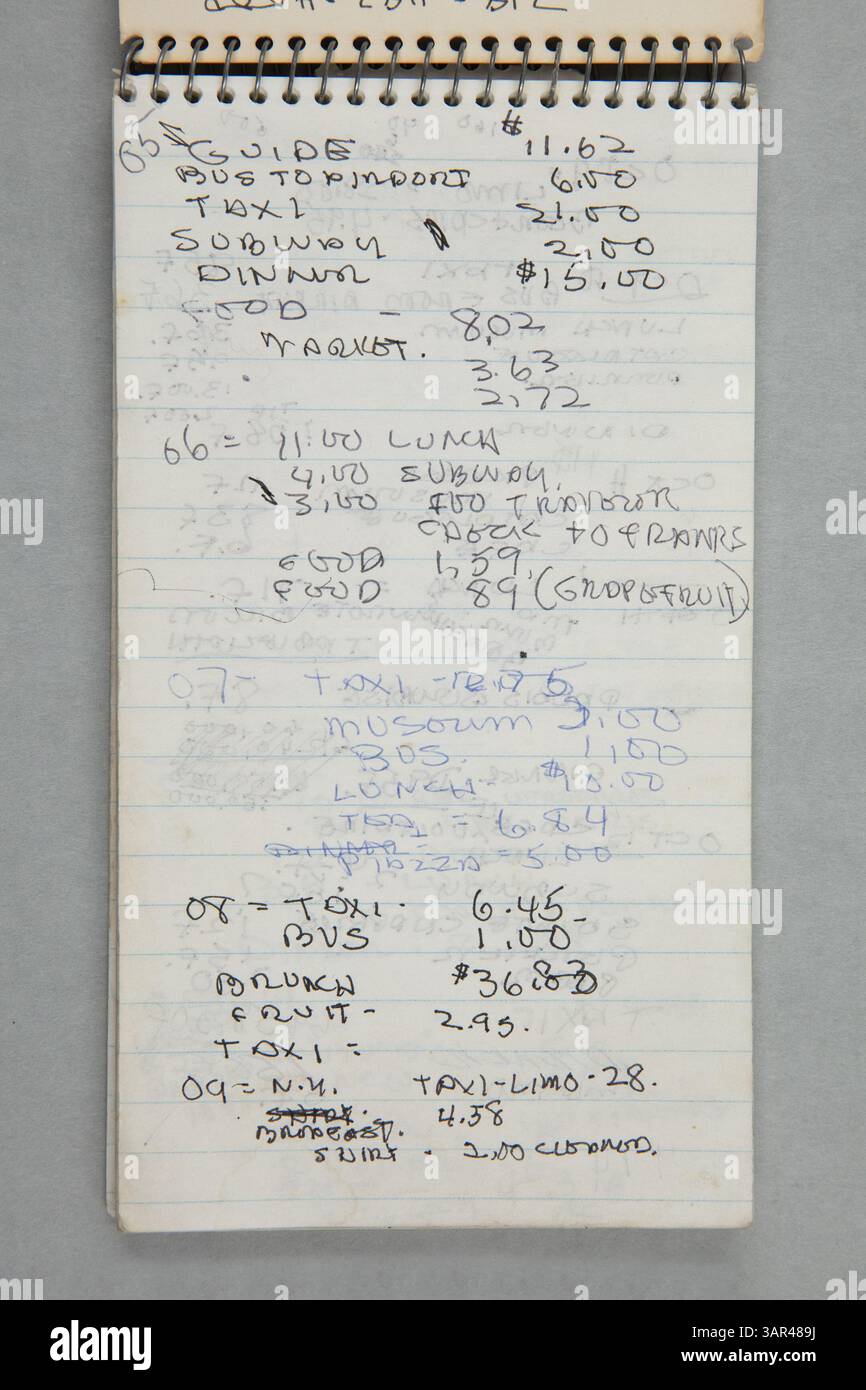 05 GUIDE $11.62
BUS TO AIRPORT 6.00
TAXI 21.00
SUBWAY 2,00
DINNER $15.00
FOOD - 8.02
MARKET. 3.63
2,72
06 = 11.00 LUNCH
4,00 SUBWAY,
3,00 FOR TRAVELER
CHECK TO FRANKS
FOOD 1,59,
FOOD 89 (GRAPEFRUIT)
07 - TAXI -
MUSEUM 3,00
BUS. 1,00
LUNCH - $10.00
TEA = 6.84
PIZZA = 5.00
08 = TAXI. 6.45
BUS 1.00
BRUNCH $36.83
FRUIT - 2.95.
TAXI =
09 = N.Y. TAXI-LIMO - 28.
4.58
BREAKFAST.
SHIRT - 2,00 CLEANED.
alamy
alamy
alamy
Image ID: 3AR489J
www.alamy.com